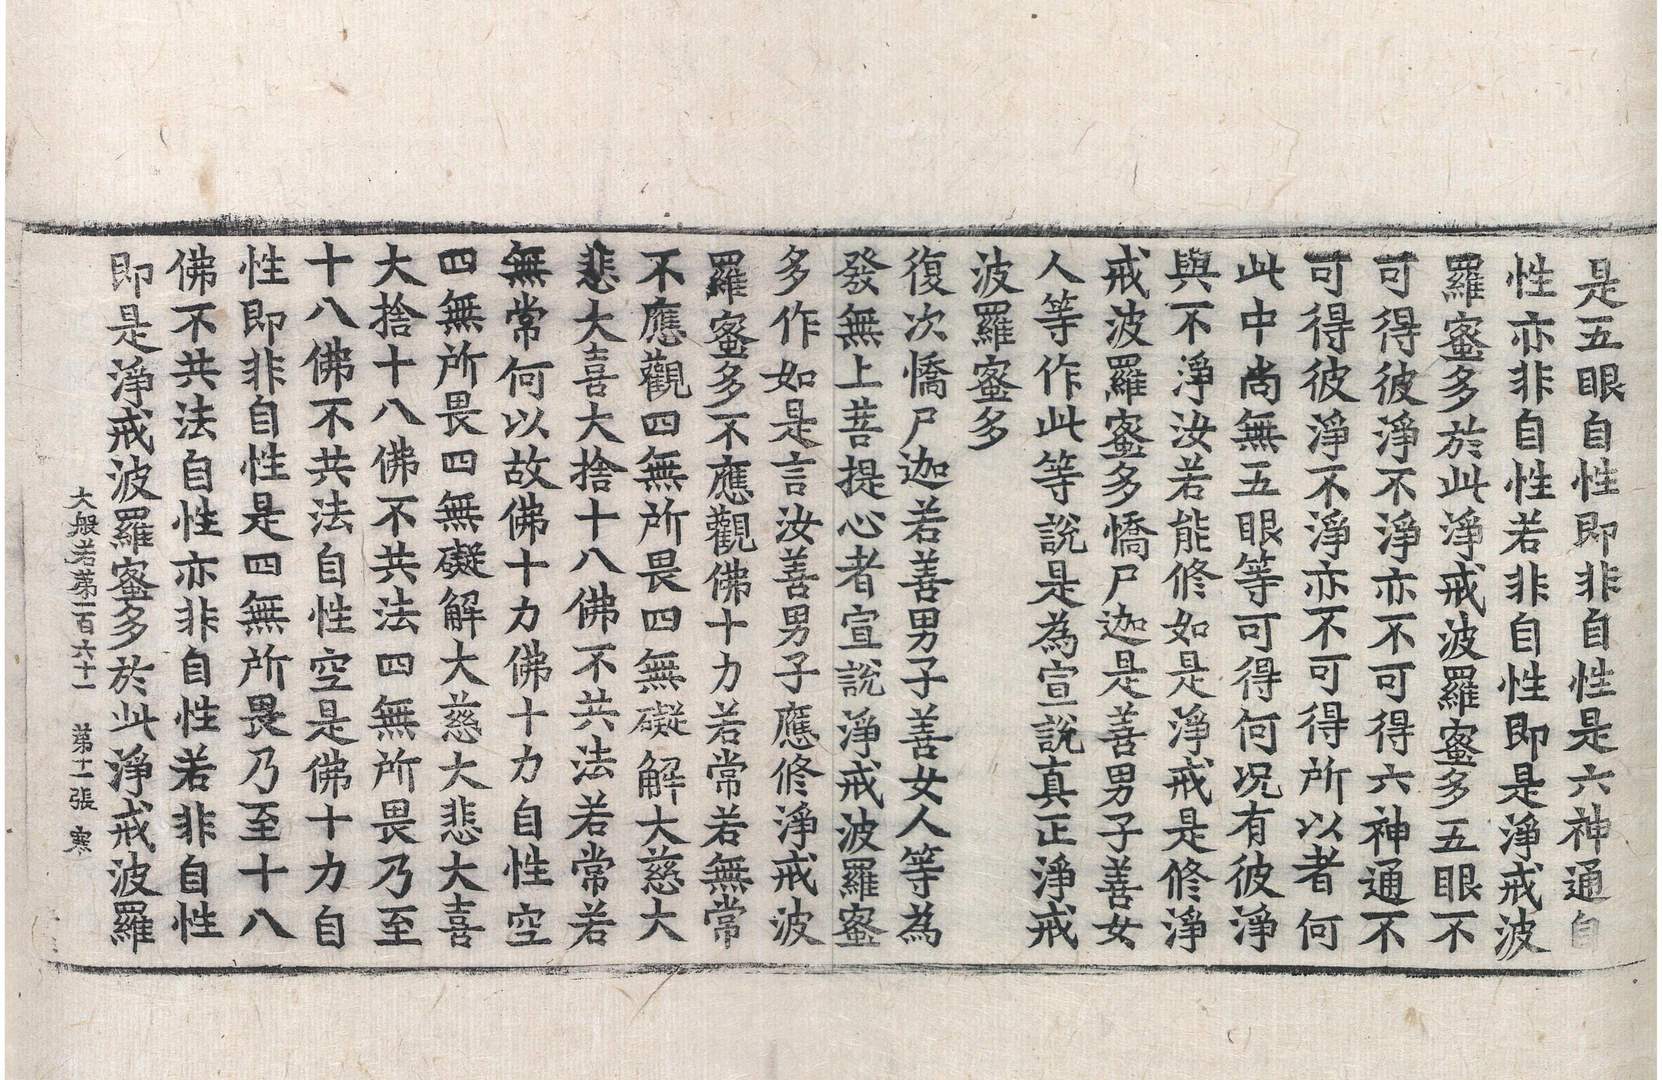 是五眼自性即非自性是六神通自
性亦非自性若非自性即是淨戒波
羅蜜多於此淨戒波羅蜜多五眼不
可得彼淨不淨亦不可得六神通不
可得彼淨不淨亦不可得所以者何
此中尚無五眼等可得何況有彼淨
與不淨汝若能修如是淨戒是修淨
戒波羅蜜多憍尸迦是善男子善女
人等作此等說是為宣說真正淨戒
波羅蜜多
復次憍尸迦若善男子善女人等為
發無上菩提心者宣說淨戒波羅蜜
多作如是言汝善男子應修淨戒波
羅蜜多不應觀佛十力若常若無常
不應觀四無所畏四無礙解大慈大
悲大喜大捨十八佛不共法若常若
無常何以故佛十力佛十力自性空
四無所畏四無礙解大慈大悲大喜
大捨十八佛不共法四無所畏乃至
十八佛不共法自性空是佛十力自
性即非自性是四無所畏乃至十八
佛不共法自性亦非自性若非自性
即是淨戒波羅蜜多於此淨戒波羅
大般若第一百六十一 第十一張 寒